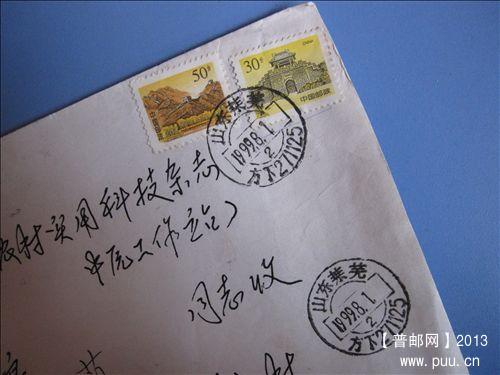 50分
30分
中国邮政
山东莱芜
1999.8.1
2
方下271125
农村实用科技杂志
同志收
山东莱芜
1999.8.1
2
方下271125
【普邮网】2013
www.puu.cn